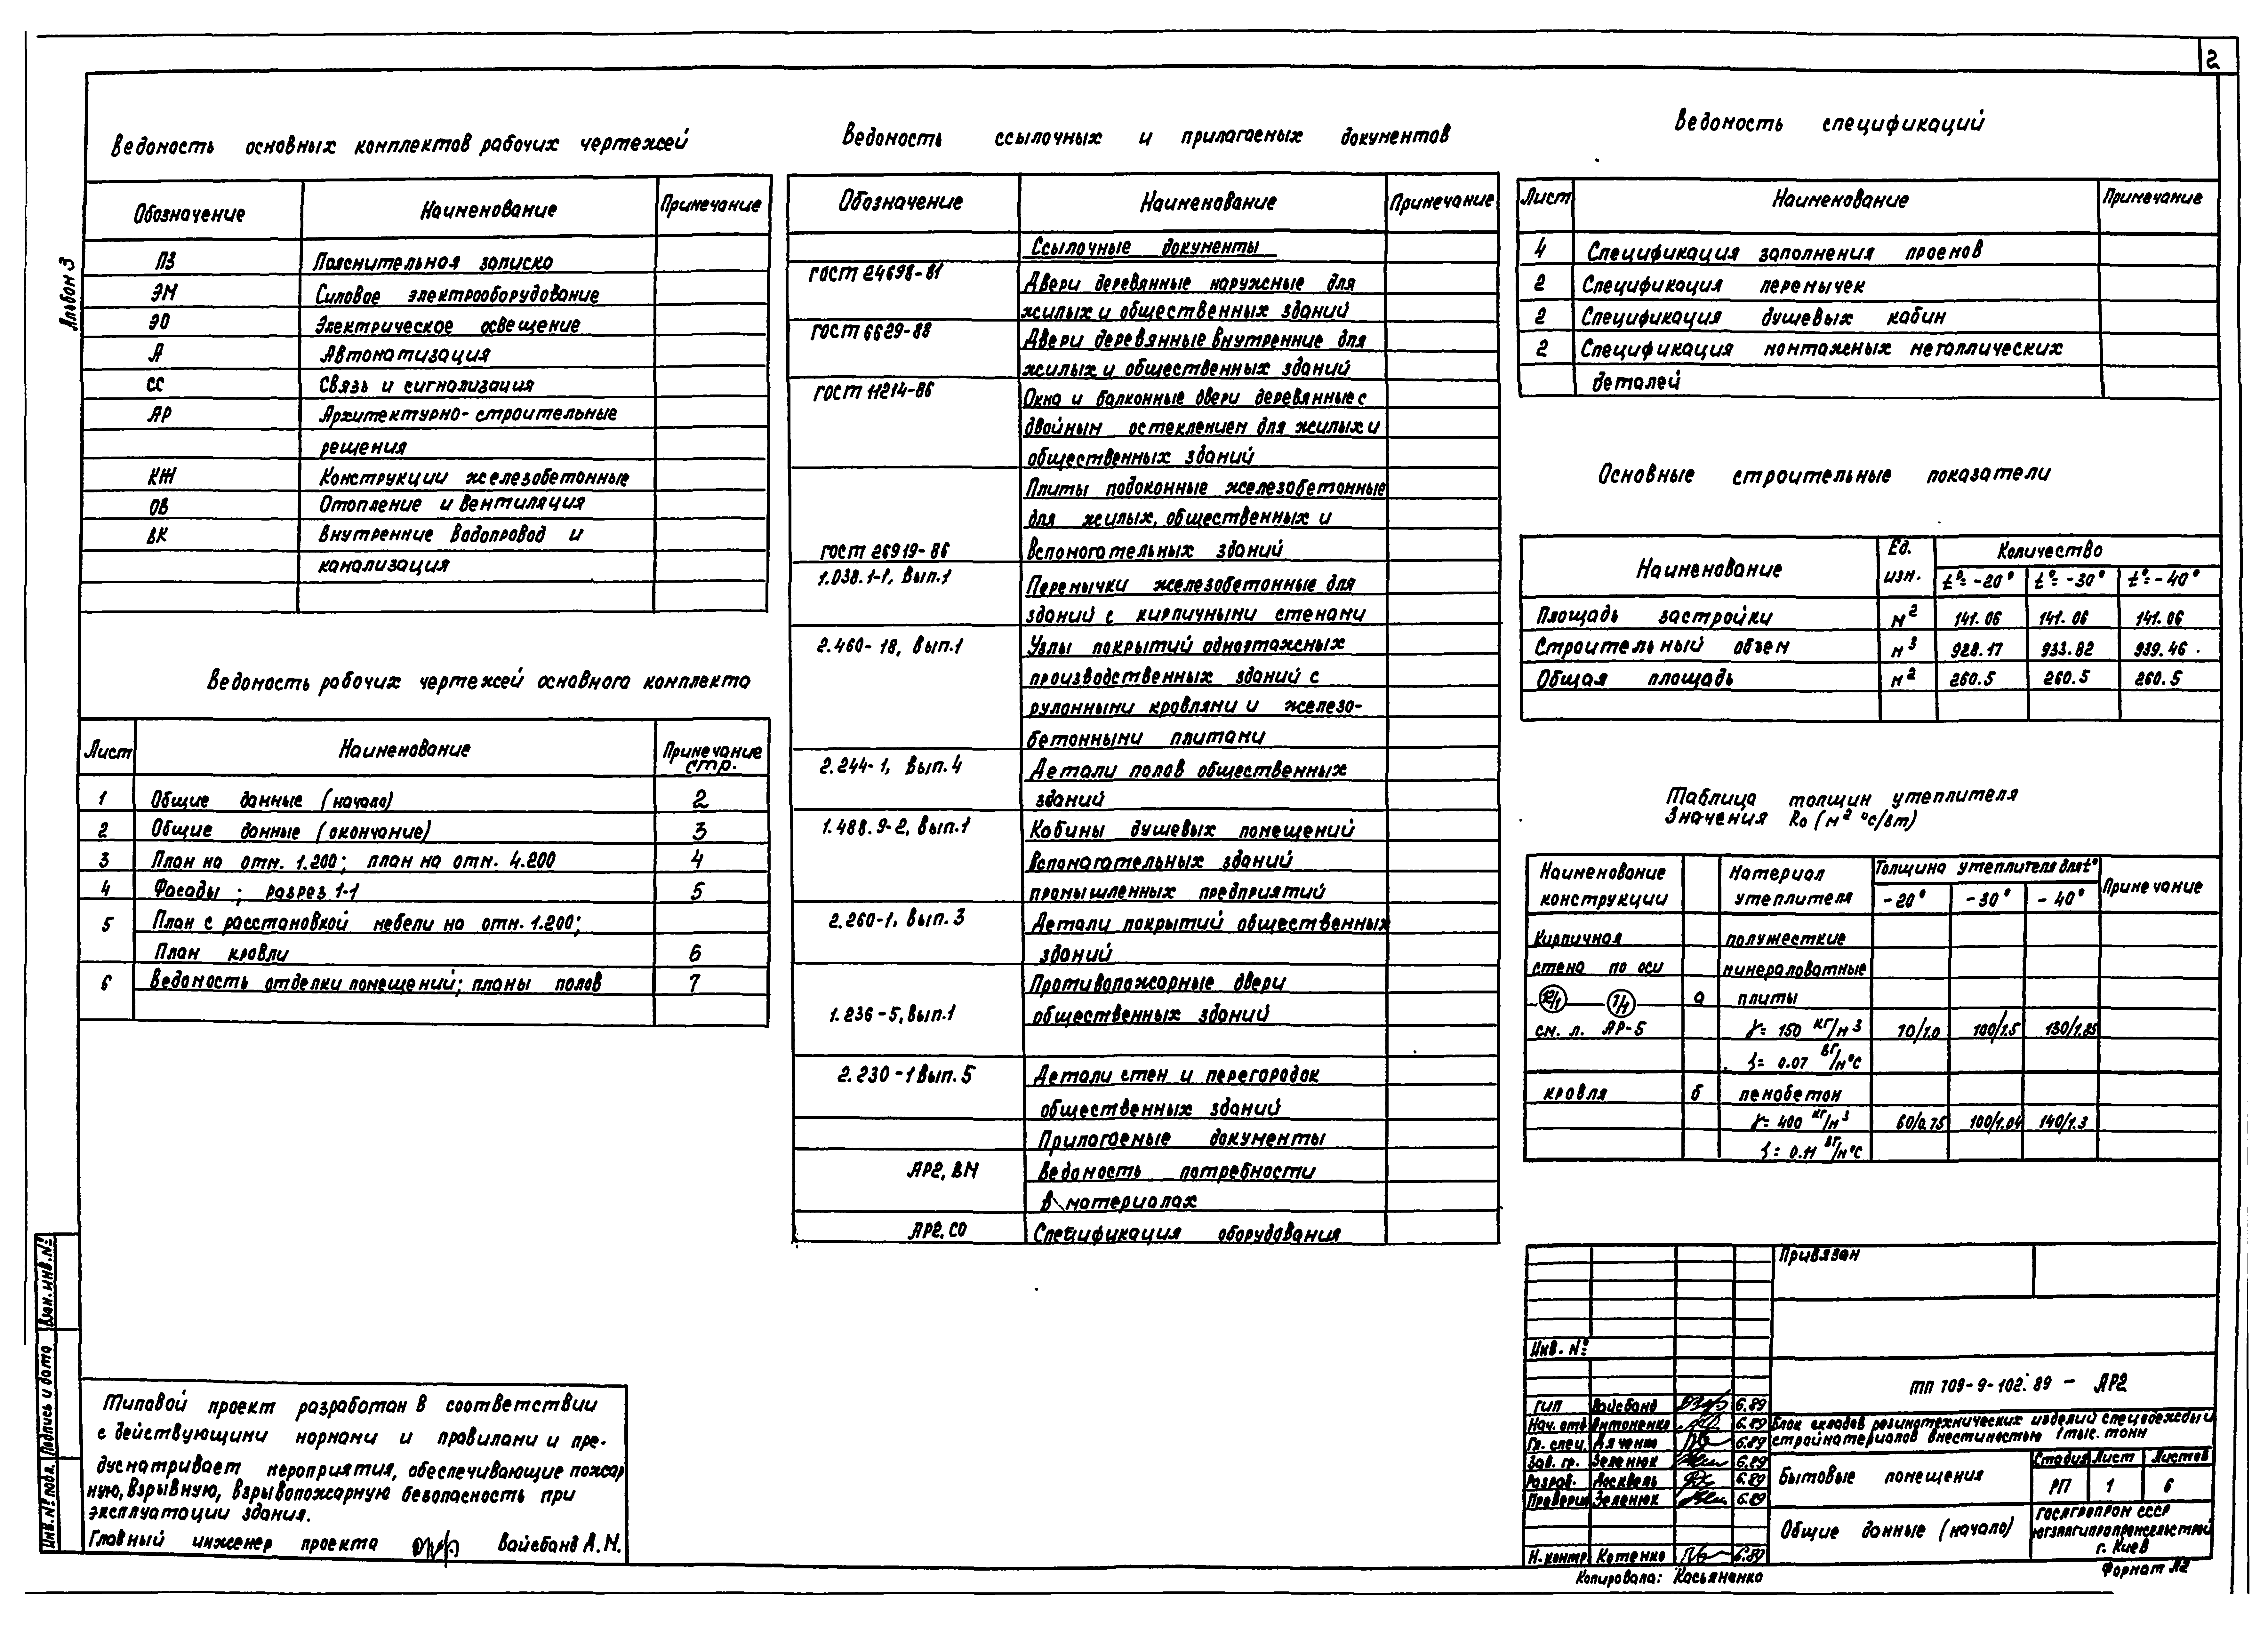 2
Альбом 3
Ведомость основных комплектов рабочих чертежей
Обозначение Наименование Примечание
ПЗ Пояснительная записка
ЭМ Силовое электрооборудование
ЭО Электрическое освещение
А Автоматизация
СС Связь и сигнализация
АР Архитектурно-строительные
решения
КЖ Конструкции железобетонные
ОВ Отопление и вентиляция
ВК Внутренние водопровод и
канализация
Ведомость рабочих чертежей основного комплекта
Лист Наименование Примечание стр.
1 Общие данные (начало) 2
2 Общие данные (окончание) 3
3 План на отм. 1.200; план на отм. 4.200 4
4 Фасады; разрез 1-1 5
5 План с расстановкой мебели на отм. 1.200;
План кровли 6
6 Ведомость отделки помещений; планы полов 7
Ведомость ссылочных и прилагаемых документов
Обозначение Наименование Примечание
Ссылочные документы
ГОСТ 24698-81 Двери деревянные наружные для
жилых и общественных зданий
ГОСТ 6629-88 Двери деревянные внутренние для
жилых и общественных зданий
ГОСТ 11214-86 Окна и балконные двери деревянные с
двойным остеклением для жилых и
общественных зданий
Плиты подоконные железобетонные
для жилых, общественных и
ГОСТ 26919-86 вспомогательных зданий
1.038.1-1, вып.1 Перемычки железобетонные для
зданий с кирпичными стенами
2.460-18, вып.1 Узлы покрытий одноэтажных
производственных зданий с
рулонными кровлями и железо-
бетонными плитами
2.244-1, вып.4 Детали полов общественных
зданий
1.488.9-2, вып.1 Кабины душевых помещений
вспомагательных зданий
промышленных предприятий
2.260-1, вып.3 Детали покрытий общественных
зданий
Противопожарные двери
1.236-5, вып.1 общественных зданий
2.230-1 вып.5 Детали стен и перегородок
общественных зданий
Прилагаемые документы
АР2, ВМ Ведомость потребности
в материалах
АР2, СО Спецификация оборудования
Ведомость спецификаций
Лист Наименование Примечание
4 Спецификация заполнения проемов
2 Спецификация перемычек
2 Спецификация душевых кабин
2 Спецификация монтажных металлических
деталей
Основные строительные показатели
Наименование Ед. изм. Количество
t°=-20° t°=-30° t°=-40°
Площадь застройки м² 141.06 141.06 141.06
Строительный объем м³ 928.17 933.82 939.46
Общая площадь м² 260.5 260.5 260.5
Таблица толщин утеплителя
Значения Ro (м² °с/вт)
Наименование конструкции Материал утеплителя Толщина утеплителя для t° Примечание
-20° -30° -40°
Кирпичная полужесткие
стена по оси минераловатные
12/1 7/1 а плиты
см. л. АР-5 γ= 150 кг/м3 70/1.0 100/1.5 130/1.85
λ= 0.07 вт/м°с
кровля б пенобетон
γ= 400 кг/м3 60/0.75 100/1.04 140/1.3
λ= 0.11 вт/м°с
Типовой проект разработан в соответствии
с действующими нормами и правилами и пре-
дусматривает мероприятия, обеспечивающие пожар
ную, взрывную, взрывопожарную безопасность при
эксплуатации здания.
Главный инженер проекта Вайсбанд А.М.
Инв. № подл. Подпись и дата Взам. инв. №
Привязан
Инв. №
тп 709-9-102.89 - АР2
ГИП Вайсбанд 6.89
Нач. отд Антоненко 6.89
Гл. спец. Дяченко 6.89
Зав. гр. Зеленюк 6.89
Разраб. Москаль 6.89
Проверил Зеленюк 6.89
Н. контр. Котенко 6.89
Блок складов резинотехнических изделий спецодежды и
стройматериалов вместимостью 1 тыс. тонн
Бытовые помещения
Стадия Лист Листов
РП 1 6
Общие данные (начало)
Госагропром СССР
Югзапгипропромсельстрой
г. Киев
Копировала: Касьяненко
Формат А2